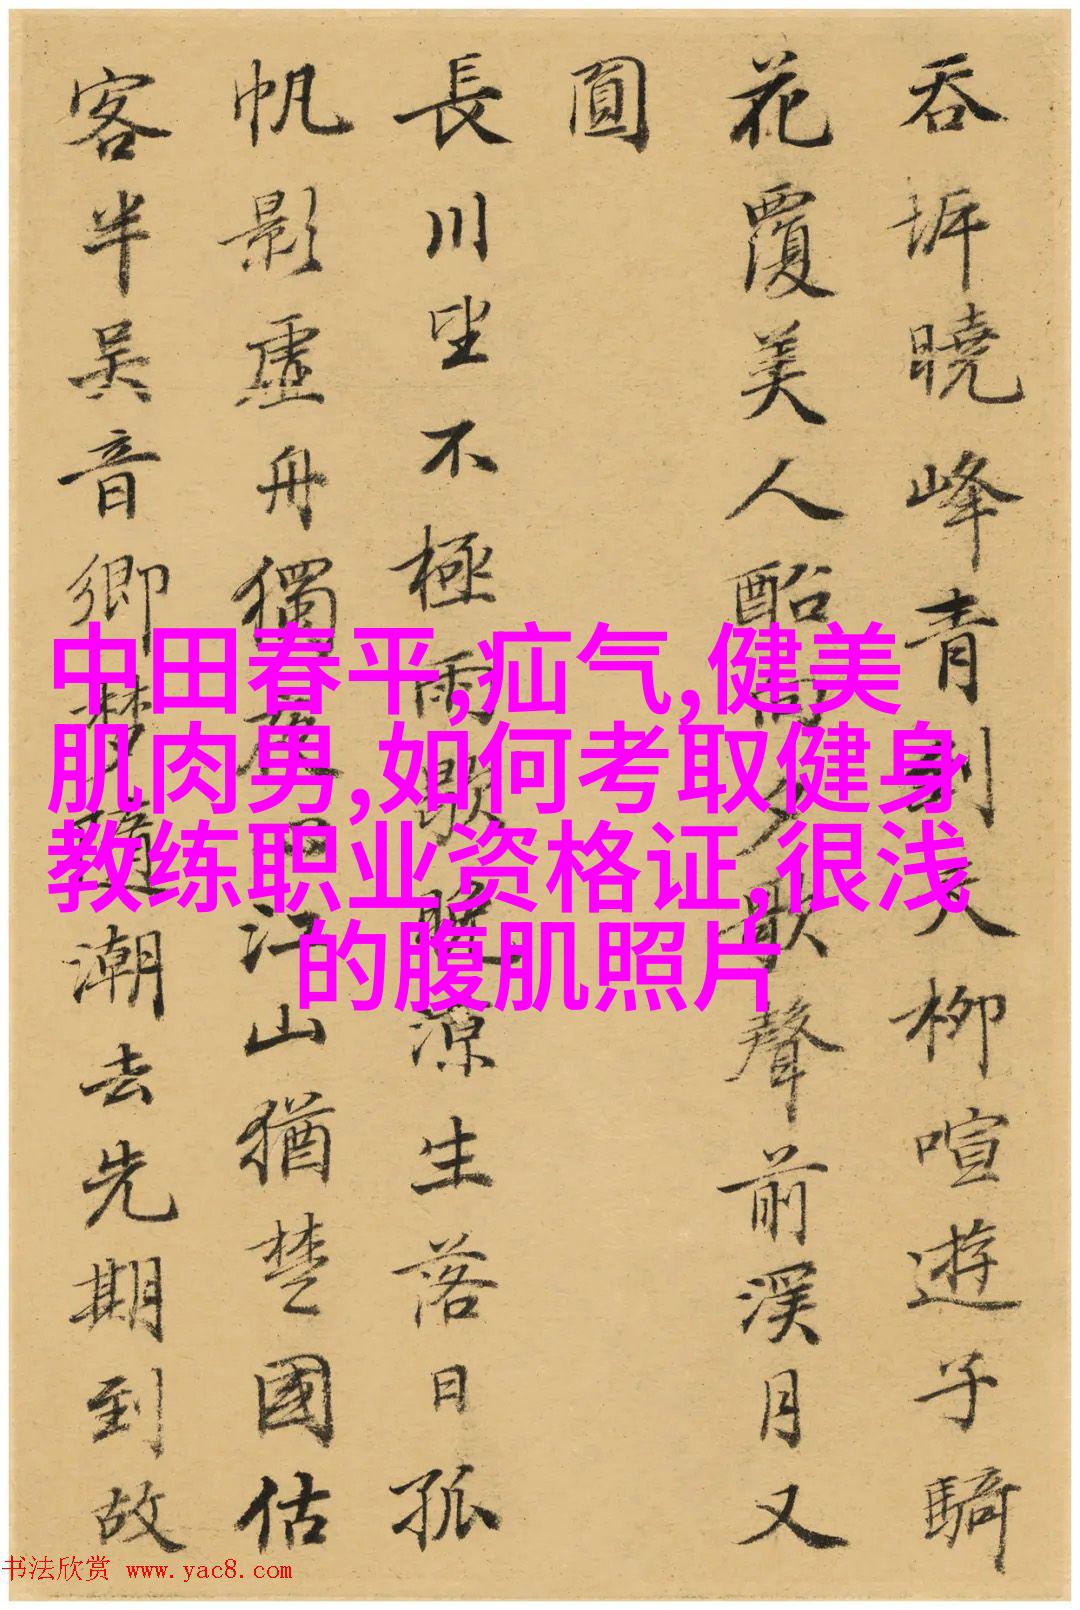 吞圻曉峰青列天柳喧遊子騎
花覆美人酩夕歌聲前溪月又
圓
長川坐不極雨歇晚涼生落日孤
帆影虛舟獨江山猶楚國估
客半吳音鄉夢隨潮去先期到故
中田春平,疝气,健美
肌肉男,如何考取健身
教练职业资格证,很浅
的腹肌照片
书法欣赏 www.yac8.com